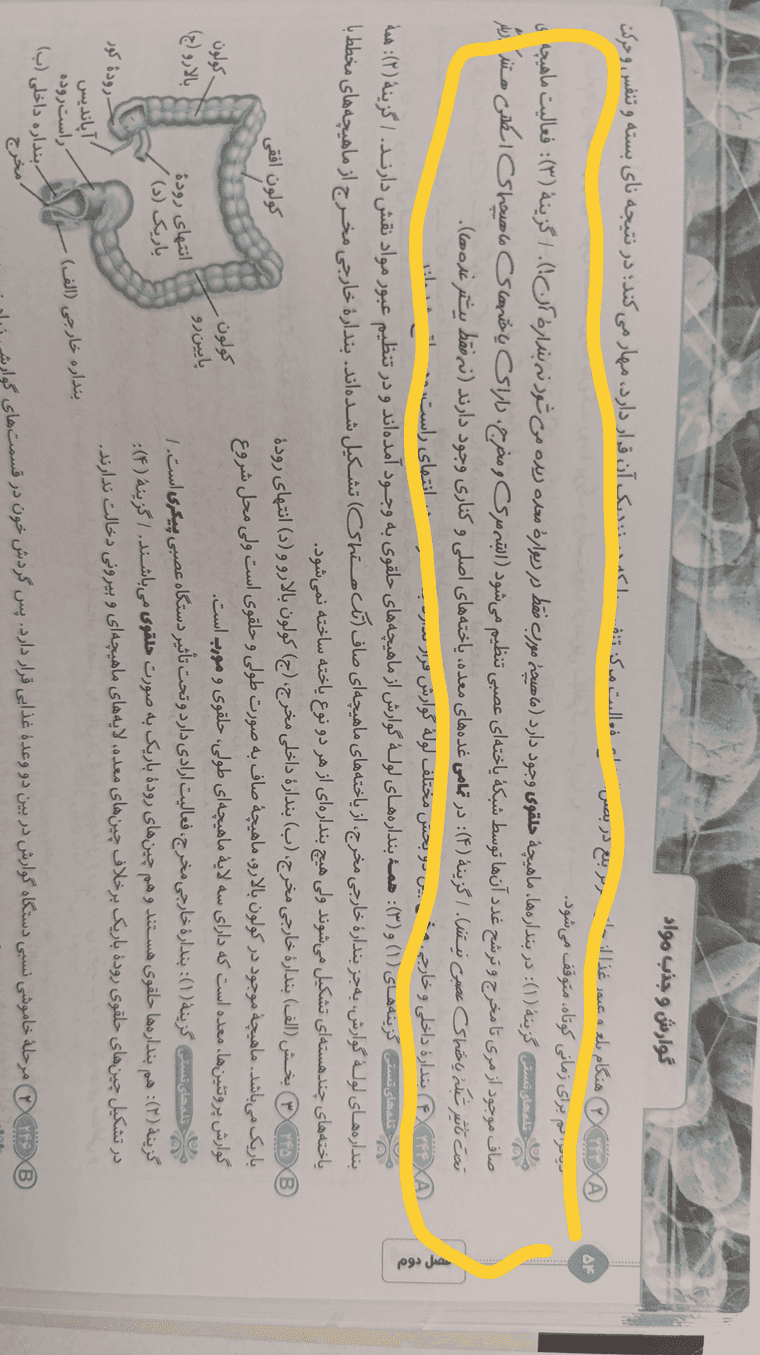 گوارش و جذب مواد
۵۴
فصل دوم
A ۲۴۳ ۲ هنگام بلع و عبور غذا از فعالیت مرکز تنفس را که در نزدیک آن قرار دارد، مهار می‌کند؛ در نتیجه نای بسته و تنفس و حرکت
برای زمانی کوتاه، متوقف می‌شود.
تله‌های تستی گزینهٔ (۱): در بنداره‌ها، ماهیچهٔ حلقوی وجود دارد (ماهیچهٔ مورب فقط در دیوارهٔ معده دیده می‌شود نه بندارهٔ آن!). / گزینهٔ (۳): فعالیت ماهیچه‌های
صاف موجود از مری تا مخرج و ترشح غدد آن‌ها توسط شبکهٔ یاخته‌ای عصبی تنظیم می‌شود (البته مری و مخرج، دارای یاخته‌های ماهیچه‌ای اسکلتی هستند که
تحت تأثیر شبکهٔ یاخته‌های عصبی نیستند). / گزینهٔ (۴): در تمامی غده‌های معده، یاخته‌های اصلی و کناری وجود دارند (نه فقط بیشتر غده‌ها).
A ۲۴۴ ۴ بندارهٔ داخلی و خارجی مخرج بین دو بخش مختلف لولهٔ گوارش قرار انتهای راست‌روده
تله‌های تستی گزینه‌های (۱) و (۳): همهٔ بنداره‌های لولهٔ گوارش از ماهیچه‌های حلقوی به وجود آمده‌اند و در تنظیم عبور مواد نقش دارند. / گزینهٔ (۲): همهٔ
بنداره‌های لولهٔ گوارش، به‌جز بندارهٔ خارجی مخرج، از یاخته‌های ماهیچه‌ای صاف (تک هسته‌ای) تشکیل شده‌اند. بندارهٔ خارجی مخرج از ماهیچه‌های مخطط با
یاخته‌های چندهسته‌ای تشکیل می‌شوند ولی هیچ بنداره‌ای از هر دو نوع یاخته ساخته نمی‌شود.
B ۲۴۵ ۳ بخش (الف) بندارهٔ خارجی مخرج، (ب) بندارهٔ داخلی مخرج، (ج) کولون بالارو و (د) انتهای رودهٔ
باریک می‌باشد. ماهیچهٔ موجود در کولون بالارو، ماهیچهٔ صاف به صورت طولی و حلقوی است ولی محل شروع
گوارش پروتئین‌ها، معده است که دارای سه لایهٔ ماهیچه‌ای طولی، حلقوی و مورب است.
تله‌های تستی گزینهٔ (۱): بندارهٔ خارجی مخرج، فعالیت ارادی دارد و تحت تأثیر دستگاه عصبی پیکری است. /
گزینهٔ (۲): هم بنداره‌ها حلقوی هستند و هم چین‌های رودهٔ باریک به صورت حلقوی می‌باشند. / گزینهٔ (۴):
در تشکیل چین‌های حلقوی رودهٔ باریک برخلاف چین‌های معده، لایه‌های ماهیچه‌ای و بیرونی دخالت ندارند.
کولون افقی
کولون بالارو (ج)
کولون پایین‌رو
انتهای رودهٔ باریک (د)
رودهٔ کور
آپاندیس
راست‌روده
بنداره داخلی (ب)
مخرج
بنداره خارجی (الف)
B ۲۴۶ ۲ مرحلهٔ خاموشی نسبی دستگاه گوارش در بین دو وعدهٔ غذایی قرار دارد. پس گردش خون در قسمت‌های گوارشی